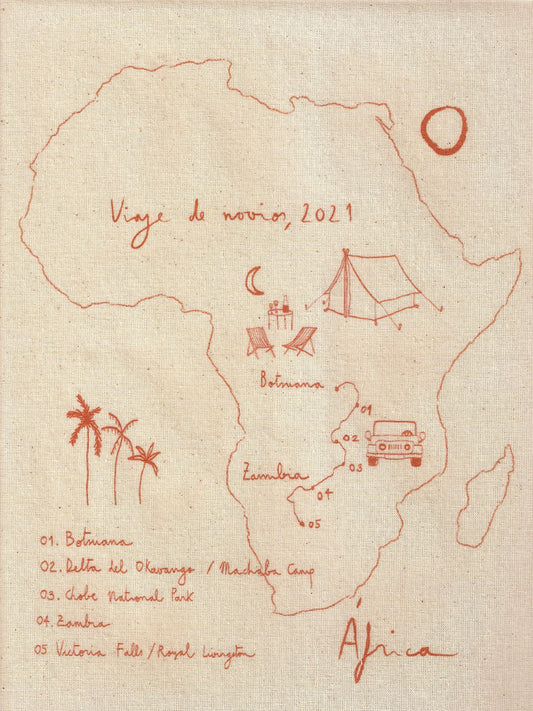 Viaje de novios, 2021
Botsuana
01
02
03
Zambia
04
05
01. Botsuana
02. Delta del Okavango / Machaba Camp
03. Chobe National Park
04. Zambia
05 Victoria Falls / Royal Livingston
África